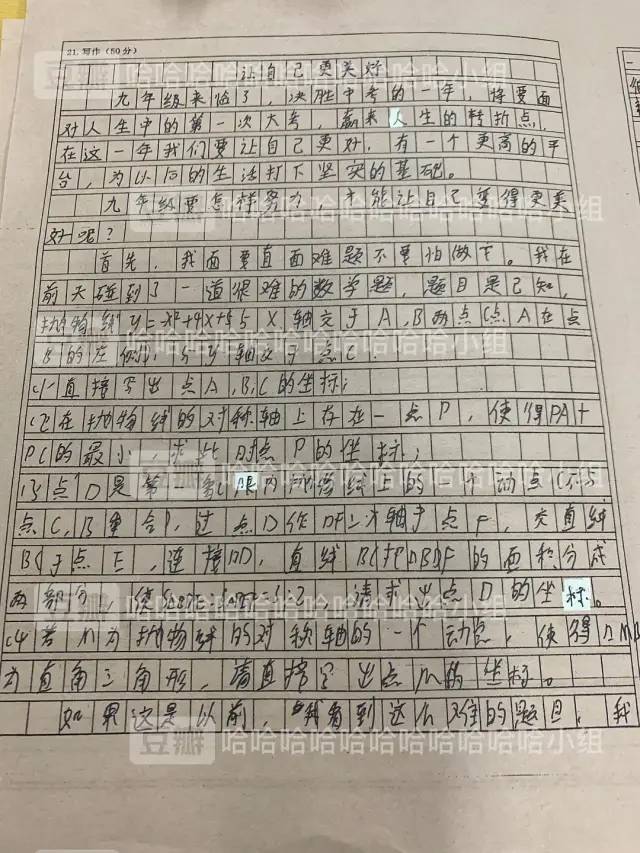 21. 写作（50分）
让自己更美好
九年级来临了，决胜中考的一年，将要面
对人生中的第一次大考，赢来人生的转折点。
在这一年我们要让自己更好，有一个更高的平
台，为以后的生活打下坚实的基础。
九年级要怎样努力，才能让自己变得更美
好呢？
首先，我面要直面难题不要怕做下。我在
前天碰到了一道很难的数学题，题目是已知，
抛物线 y=x²+4x+5 X轴交于A,B两点(点A在点
B的左侧),与y轴交于点C.
(1)直接写出点A,B,C的坐标；
(2)在抛物线的对称轴上存在一点P，使得PA+
PC的最小，求此时点P的坐标；
(3)点D是第一象限内抛物线上的一个动点(不与
点C,B重合)，过点D作DF⊥x轴于点F，交直线
BC于点E，连接BD，直线BC把△BDF的面积分成
两部分，使 ，请求出点D的坐标。
(4)若M为抛物线的对称轴的一个动点，使得△MB
为直角三角形，请直接写出点M的坐标。
如果这是以前，我看到这么难的题目，我
豆瓣 哈哈哈哈哈哈哈哈哈哈小组